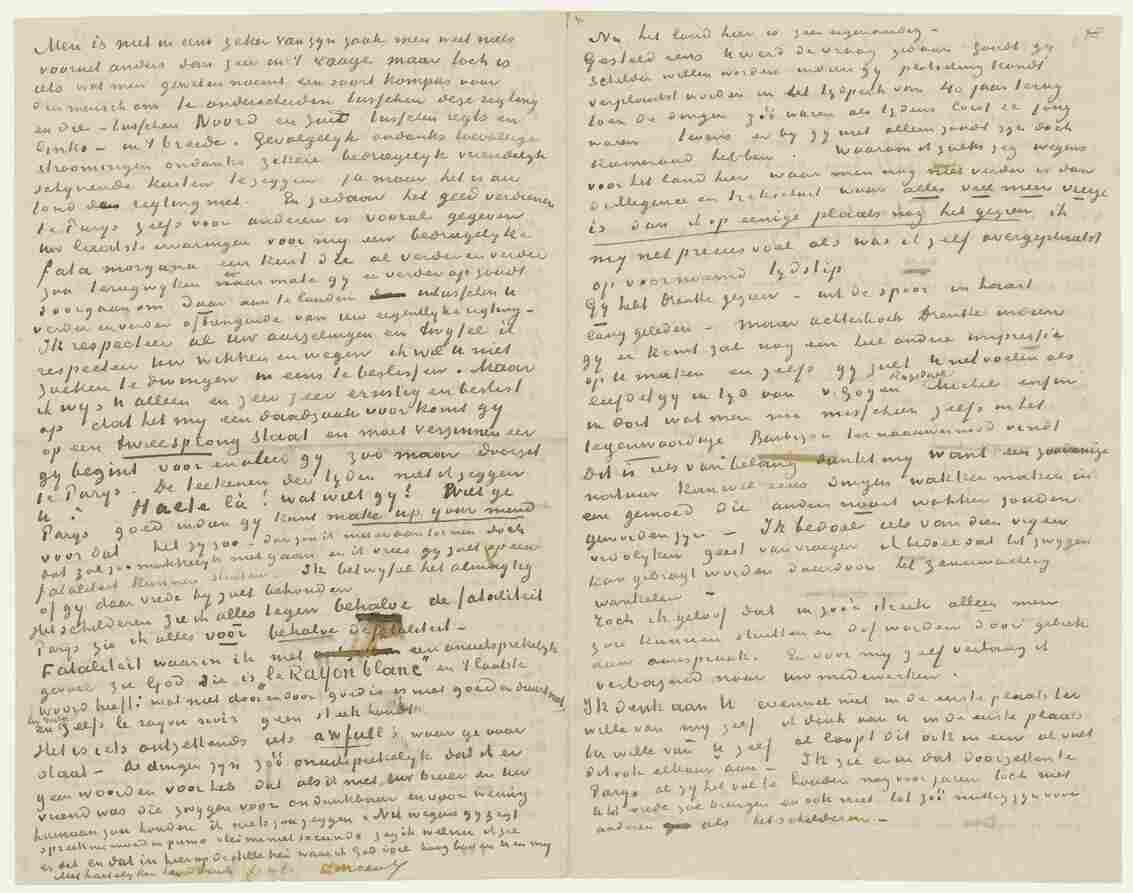 Men is niet in eens zeker van zyn zaak men weet niets
vooruit anders dan zeer in 't vaage maar toch is
iets wat men geweten noemt een soort kompas voor
den mensch om te onderscheiden tusschen deze rigting
en die – tusschen Noord en Zuid tusschen regts en
links – in 't breede. Gevolgelyk ondanks toevallige
stroomingen ondanks zekere bedriegelyk vriendelyk
schynende kusten te zeggen ja maar het is die
rigting niet. En ziedaar het geld verdienen
te Parys zelfs voor anderen is vooral gegeven
uw laatste ervaringen voor my een bedriegelyke
fata morgana een kust die al verder en verder
zou terugwyken naarmate gy er verder op zoudt
doorgaan om daar aan te landen intusschen u
verder en verder van uw eigentlyke rigting –
Ik respecteer al uw aarzelingen en twyfel ik
respecteer uw wikken en wegen ik wil u niet
zoeken te dwingen in eens te beslissen. Maar
ik wys u alleen en zeer zeer ernstig en beslist
op dat het my een daadzaak voorkomt gy
op een tweesprong staat en moet verzinnen eer
gy begint vooral eer gy zoo maar doorzet
te Parys. De teekenen der tyden niet it zeggen
u? Halte là! wat wilt gy? Wilt ge
Parys goed indien gy kunt make up your mind
voor dat het zy zoo – dan zou ik
dat zal zoo makkelyk niet gaan en ik vrees gy zult op een
fataliteit kunnen stuiten. Ik betwyfel het almagtig
of gy daar vrede by zult behouden
Het schilderen zie ik alles tegen behalve de fataliteit
Parys zie ik alles voor behalve de fataliteit –
Fataliteit waarin ik met een onuitsprekelyk
gevoel zie God die is "le Rayon blanc" en 't laatste
woord heeft; wat niet door en door goed is is niet goed en duurt niet
en zelfs le rayon noir geen steek houdt
Het is iets ontzettends iets awfull; waar ge voor
staat – de dingen zyn zóó onuitsprekelyk dat ik er
geen woorden voor heb dat als ik niet uw broer en uw
vriend was die zwygen voor ondankbaar en voor weinig
humaan zou houden ik niets zou zeggen. Nu wegens gy zegt
ik zie
er dit en dat in hierop de stille hei waar ik God voel hoog boven u en my
Vincent
Nu het land hier is zeer eigenaardig –
Gesteld eens U werd de vraag gedaan zoudt gy
schilder willen worden indien gy plotseling kondt
verplaatst worden in het tydperk van 40 jaar terug
toen de dingen zóó waren als tydens Corot etc jong
waren tevens er by gy niet alleen zoudt zyn doch
kameraad hebben. Waarom ik zulks zeg wegens
voor het land hier waar men nog niet verder is dan
diligence en trekschuit waar alles veel meer vierge
is dan ik op eenige plaats nog heb gezien ik
my net precies voel als was ik zelf overgeplaatst
op voornoemd tydstip
Gy hebt Drenthe gezien – uit de spoor in haast
lang geleden – maar achterhoek Drenthe indien
gy er komt zal nog een heel andere impressie
op u maken en zelfs gy zult u net voelen als
leefdet gy in tyd van v. Goyen Ruysdael Michel enfin
in dat wat men nu misschien zelfs in het
tegenwoordige Barbizon ternauwernood vindt
Dit is iets van belang dunkt my want een zoodanige
natuur kan wel eens dingen wakker maken in
een gemoed die anders nooit wakker zouden
geworden zyn – Ik bedoel iets van dien vryen
vrolyken geest van vroeger ik bedoel dat tot zwygen
kan gebragt worden daardoor het zenuwachtig
wankelen –
Toch ik geloof dat in zoo'n streek alleen men
zou kunnen stuiten en dof worden door gebrek
aan aanspraak. En voor my zelf verlang ik
verbazend naar uw medewerken.
Ik denk aan U evenwel niet in de eerste plaats ter
wille van my zelf ik denk aan u in de eerste plaats
ter wille van u zelf al loopt dit ook in een al vult
dit ook elkaar aan – Ik zie er in dat doorzetten te
Parys al zy het vol te houden nog voor jaren toch niet
U tot vrede zou brengen en ook niet tot zóó nuttig zyn voor
anderen als het schilderen. –